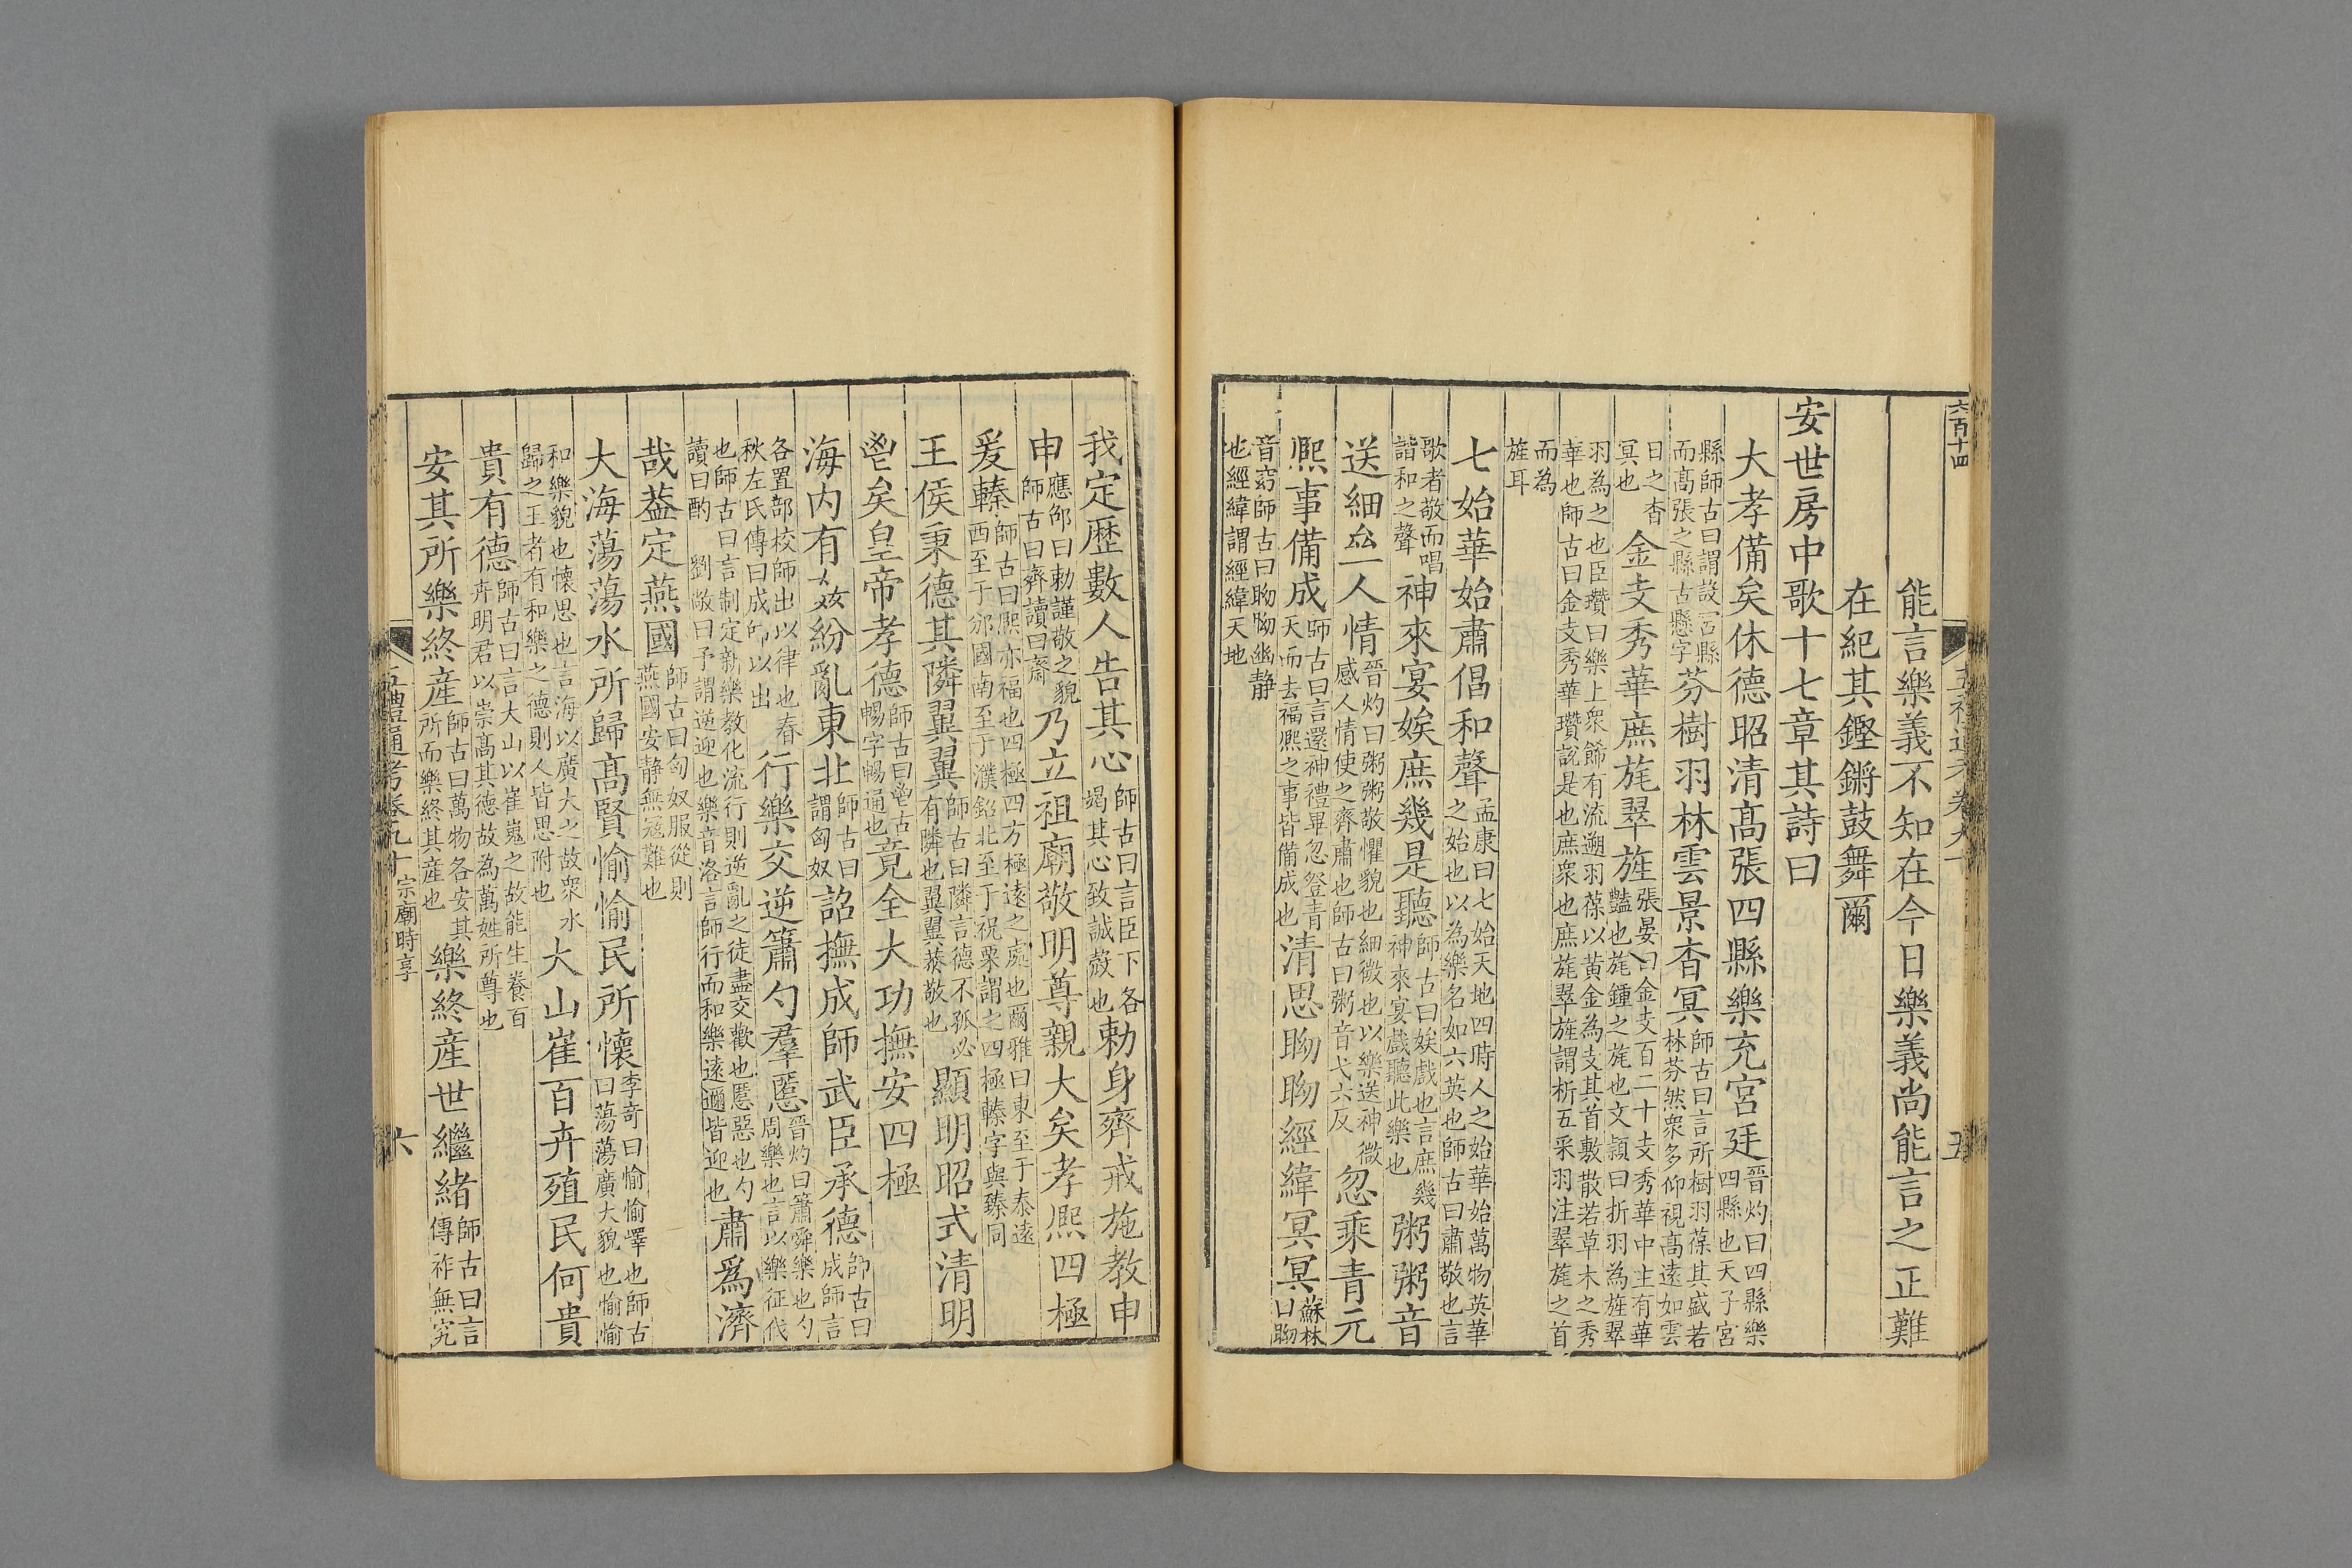 六百十四
五禮通考卷九十
五
能言樂義不知在今日樂義尚能言之正難
在紀其鏗鏘鼓舞爾
安世房中歌十七章其詩曰
大孝備矣休德昭清高張四縣樂充宮廷晉灼曰四縣樂四縣也天子宮
縣師古曰謂設宮縣而高張之縣古懸字芬樹羽林雲景杳冥師古曰言所樹羽葆其盛若林芬然衆多仰視高遠如雲
日之杳冥也金支秀華庶旄翠旌張晏曰金支百二十支秀華中主有華豔也旄鍾之旄也文穎曰折羽為旌翠
羽為之也臣瓚曰樂上衆飾有流遡羽葆以黃金為支其首敷散若草木之秀華也師古曰金支秀華瓚說是也庶衆也庶旄翠旌謂析五采羽注翠旄之首
而為旌耳
七始華始肅倡和聲孟康曰七始天地四時人之始華始萬物英華之始也以為樂名如六英也師古曰肅敬也言
歌者敬而唱諧和之聲神來宴娭庶幾是聽師古曰娭戲也言庶幾神來宴戲聽此樂也粥粥音
送細𡘋人情晉灼曰粥粥敬懼貌也細微也以樂送神微感人情使之齊肅也師古曰粥音弋六反忽乘青元
熙事備成師古曰言還神禮畢忽登青天而去福熙之事皆備成也清思眑眑經緯冥冥蘇林曰眑
音窈師古曰眑眑幽靜也經緯謂經緯天地
我定歷數人告其心師古曰言臣下各竭其心致誠慤也勅身齊戒施教申
申應邵曰勅謹敬之貌師古曰齊讀曰齋乃立祖廟敬明尊親大矣孝熙四極
爰轃師古曰熙亦福也四極四方極遠之處也爾雅曰東至于泰遠西至于邠國南至于濮鈆北至于祝栗謂之四極轃字與臻同
王侯秉德其隣翼翼師古曰隣言德不孤必有隣也翼翼恭敬也顯明昭式清明
鬯矣皇帝孝德師古曰鬯古暢字暢通也竟全大功撫安四極
海內有姦紛亂東北師古曰謂匈奴詔撫成師武臣承德師古曰成師言
各置部校師出以律也春秋左氏傳曰成師以出行樂交逆簫勺羣慝晉灼曰簫舜樂也勺周樂也言以樂征伐
也師古曰言制定新樂教化流行則逆亂之徒盡交歡也慝惡也勺讀曰酌 劉敞曰予謂逆迎也樂音洛言師行而和樂遠邇皆迎也肅爲濟
哉葢定燕國師古曰匈奴服從則燕國安靜無寇難也
大海蕩蕩水所歸高賢愉愉民所懷李奇曰愉愉懌也師古曰蕩蕩廣大貌也愉愉
和樂貌也懷思也言海以廣大之故衆水歸之王者有和樂之德則人皆思附也大山崔百卉殖民何貴
貴有德師古曰言大山以崔嵬之故能生養百卉明君以崇高其德故為萬姓所尊也
安其所樂終産師古曰萬物各安其所而樂終其産也樂終産世繼緒師古曰言傳祚無究
五禮通考卷九十宗廟時享
六